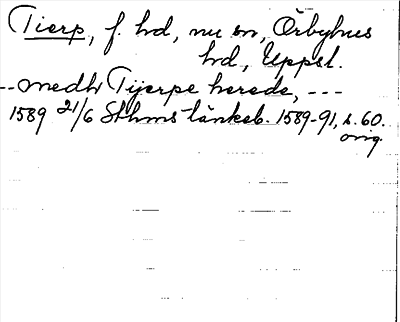 Tierp, f. hd, nu sn, Örbyhus
hd, Uppsl.
-- medh Tijerpe herede, ---
1589 21/6 Sthms tänkeb. 1589-91, s. 60.
orig.